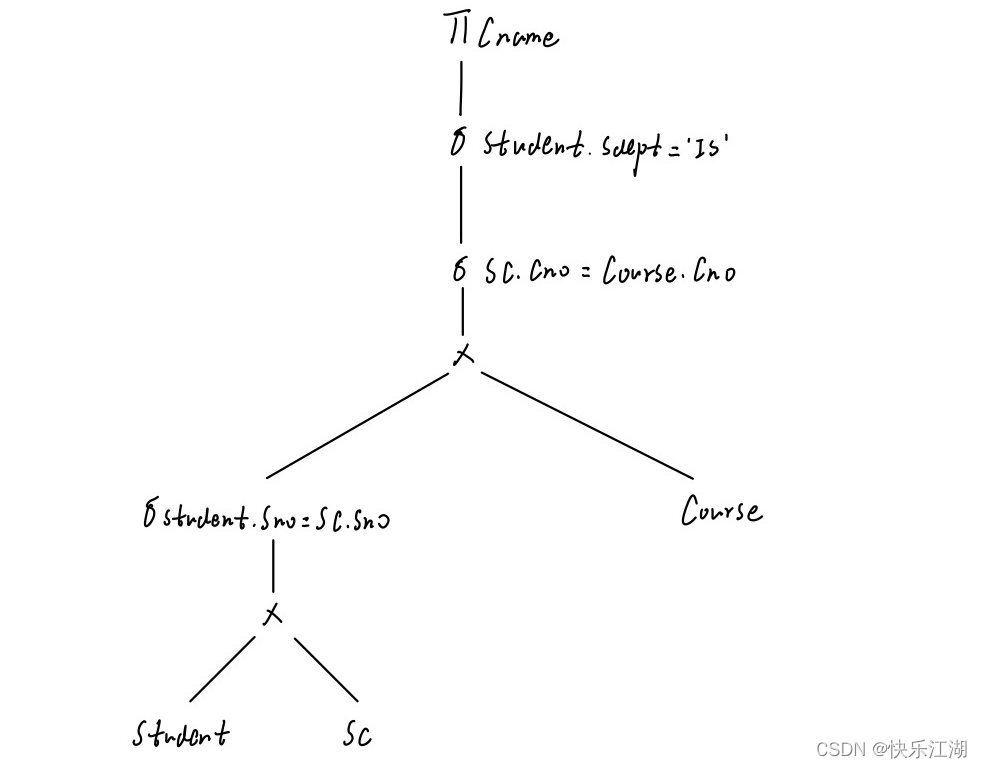 π Cname
σ Student.Sdept='IS'
σ SC.Cno = Course.Cno
×
σ Student.Sno=SC.Sno
Course
×
Student SC
CSDN @快乐江湖